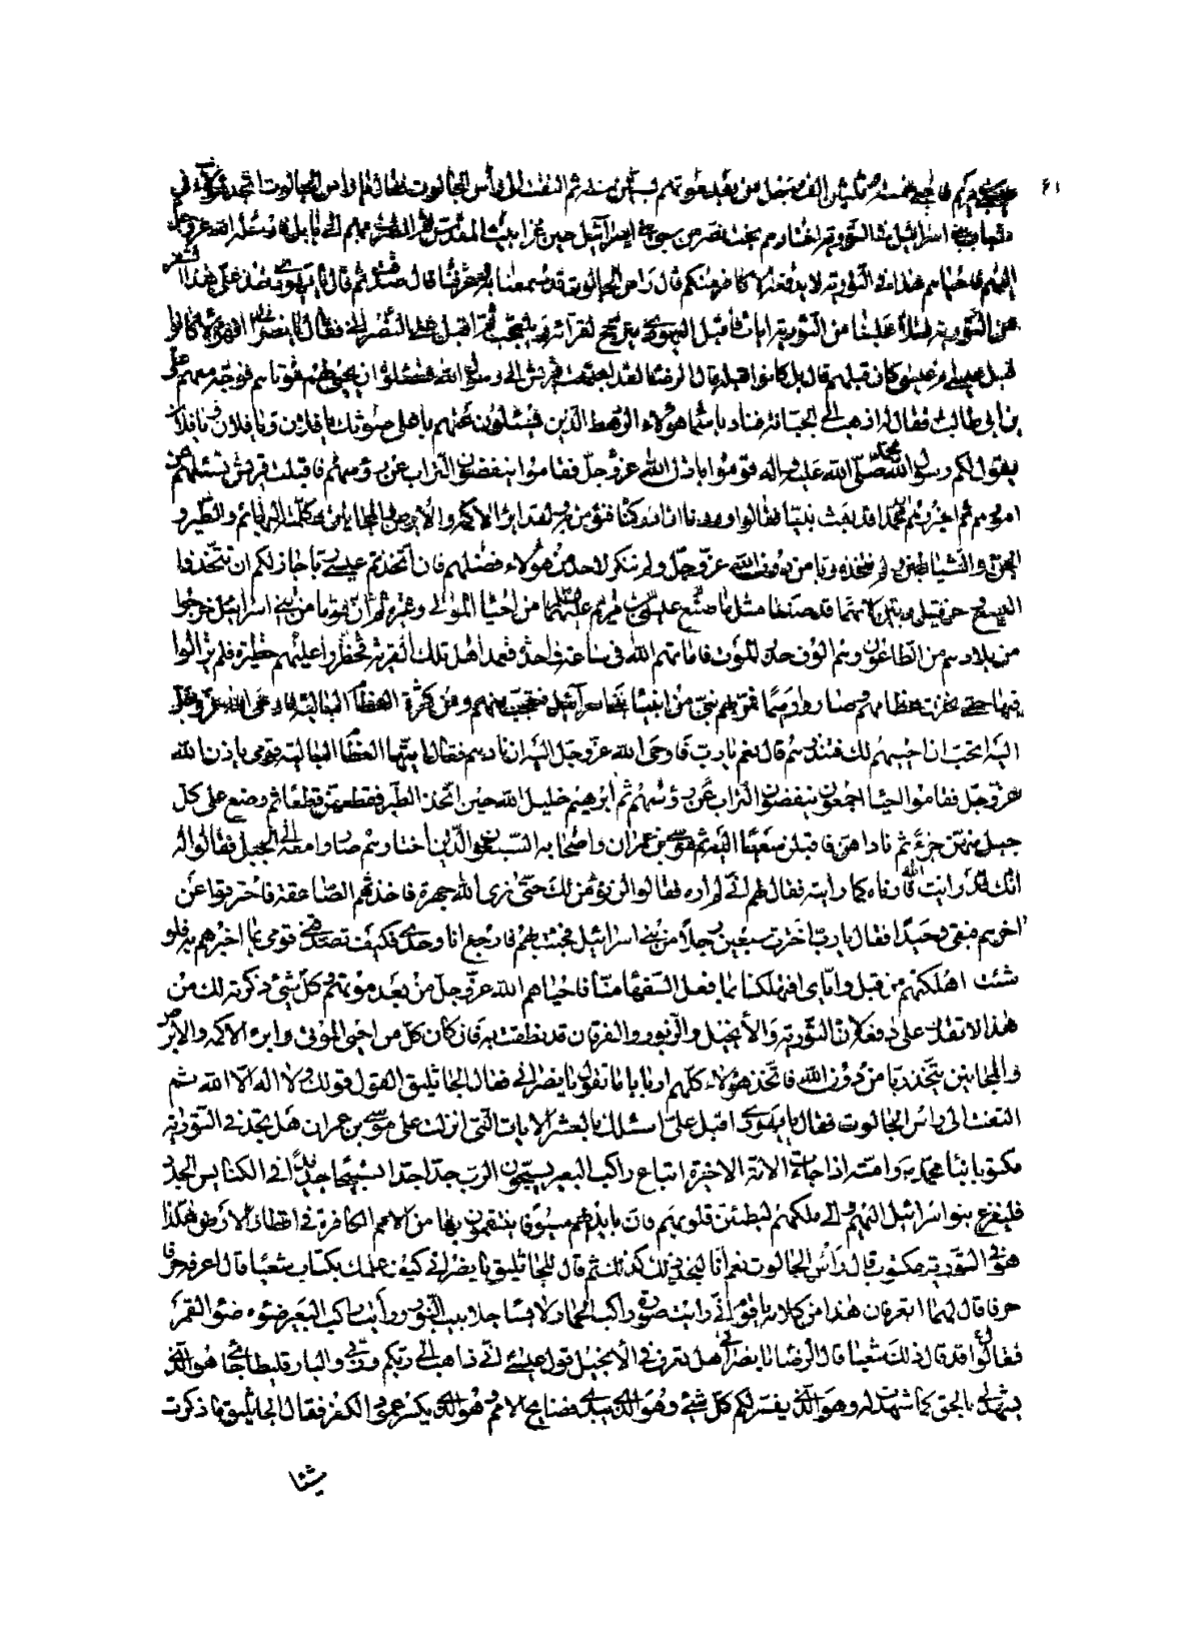 عيسى بن مريم فاحيى خمسة وثلثين الف رجل من بعد موتهم بستين سنة ثم التفت الى رأس الجالوت فقال له يا رأس الجالوت اتجد هؤلاء في
شباب بني اسرائيل في التورية اختارهم بخت نصر من سبي بني اسرائيل حين غزا بيت المقدس ثم انصرف بهم الى بابل فارسله الله عز وجل
اليهم فاحياهم هذا في التورية لا يدفعه الا كافر منكم قال رأس الجالوت قد سمعنا به وعرفناه قال صدقت ثم قال يا يهودي خذ على هذا السفر
من التورية فتلا علينا من التورية ايات فاقبل اليهودي يترجح لقراءته ويتعجب ثم اقبل على النصراني فقال يا نصراني افهؤلاء كانوا
قبل عيسى ام عيسى كان قبلهم قال بل كانوا قبله قال الرضا لقد اجتمعت قريش الى رسول الله فسئلوه ان يحيي لهم موتاهم فوجه معهم علي
بن ابي طالب فقال له اذهب الى الجبانة فناد باسماء هؤلاء الرهط الذين يسئلون عنهم باعلى صوتك يا فلان ويا فلان ويا فلان
يقول لكم رسول الله محمد صلى الله عليه واله قوموا باذن الله عز وجل فقاموا ينفضون التراب عن رؤسهم فاقبلت قريش تسئلهم عن
امورهم ثم اخبروهم ان محمدا قد بعث نبيا فقالوا وددنا انا ادركناه فنؤمن به ولقد ابرء الاكمه والابرص والمجانين وكلمه البهائم والطير و
الجن والشياطين ولم نتخذه ربا من دون الله عز وجل ولم ننكر لاحد من هؤلاء فضلهم فان اتخذتم عيسى ربا جاز لكم ان تتخذوا
اليسع وحزقيل ربين لانهما قد صنعا مثل ما صنع عيسى بن مريم عليهما من احياء الموتى وغيره وان قوما من بني اسرائيل خرجوا
من بلادهم من الطاعون وهم الوف حذر الموت فاماتهم الله في ساعة واحدة فعمد اهل تلك القرية فحظروا عليهم حظيرة فلم يزالوا
فيها حتى نخرت عظامهم وصاروا رميما فمر بهم نبي من انبياء بني اسرائيل فتعجب منهم ومن كثرة العظام البالية فاوحى الله عز وجل
اليه اتحب ان احييهم لك فتنذرهم قال نعم يا رب فاوحى الله عز وجل اليه ان نادهم فقال ايتها العظام البالية قومي باذن الله
عز وجل فقاموا احياء اجمعون ينفضون التراب عن رؤسهم ثم ابرهيم خليل الله حين اتخذ الطير فقطعهن قطعا ثم وضع على كل
جبل منهن جزءً ثم ناداهن فاقبلن سعيا اليه ثم موسى بن عمران واصحابه السبعون الذين اختارهم صاروا معه الى الجبل فقالوا له
انك قد رايت الله فارناه كما رايته فقال لهم اني لم اره فقالوا لن نؤمن لك حتى نرى الله جهرة فاخذتهم الصاعقة فاحترقوا عن
اخرهم فبقي وحيدا فقال يا رب اخترت سبعين رجلا من بني اسرائيل فجئت بهم فارجع انا وحدي فكيف تصدقني قومي بما اخبرهم به فلو
شئت اهلكتهم من قبل واياي افتهلكنا بما فعل السفهاء منا فاحياهم الله عز وجل من بعد موتهم كل شيء ذكرته لك من
هذا لا تقدر على دفعه لان التورية والانجيل والزبور والفرقان قد نطقت به فان كان كل من احيى الموتى وابرء الاكمه والابرص
والمجانين يتخذ ربا من دون الله فاتخذ هؤلاء كلهم اربابا ما تقول يا نصراني فقال الجاثليق القول قولك ولا اله الا الله ثم
التفت الى رأس الجالوت فقال يا يهودي اقبل علي اسئلك بالعشر الايات التي انزلت على موسى بن عمران هل تجد في التورية
مكتوبا نبأ محمد وامته اذا جاءت الامة الاخيرة اتباع راكب البعير يسبحون الرب جدا جدا تسبيحا جديدا في الكنايس الجدد
فليفرغ بنو اسرائيل اليهم والى ملكهم لتطمئن قلوبهم فان بايديهم سيوفا ينتقمون بها من الامم الكافرة في اقطار الارض هكذا
هو في التورية مكتوب قال رأس الجالوت نعم انا لنجد ذلك كذلك ثم قال للجاثليق يا نصراني كيف علمك بكتاب شعيا قال اعرفه حرفا
حرفا قال لهما اتعرفان هذا من كلامه يا قوم اني رايت صورة راكب الحمار لابسا جلابيب النور ورايت راكب البعير ضوءه ضوء القمر
فقالا قد قال ذلك شعيا قال الرضا يا نصراني هل تعرف في الانجيل قول عيسى اني ذاهب الى ربكم وربي والبارقليطا جائي هو الذي
يشهد لي بالحق كما شهدت له وهو الذي يفسر لكم كل شيء وهو الذي يبدي فضايح الامم وهو الذي يكسر عمود الكفر فقال الجاثليق ما ذكرت
شيئا